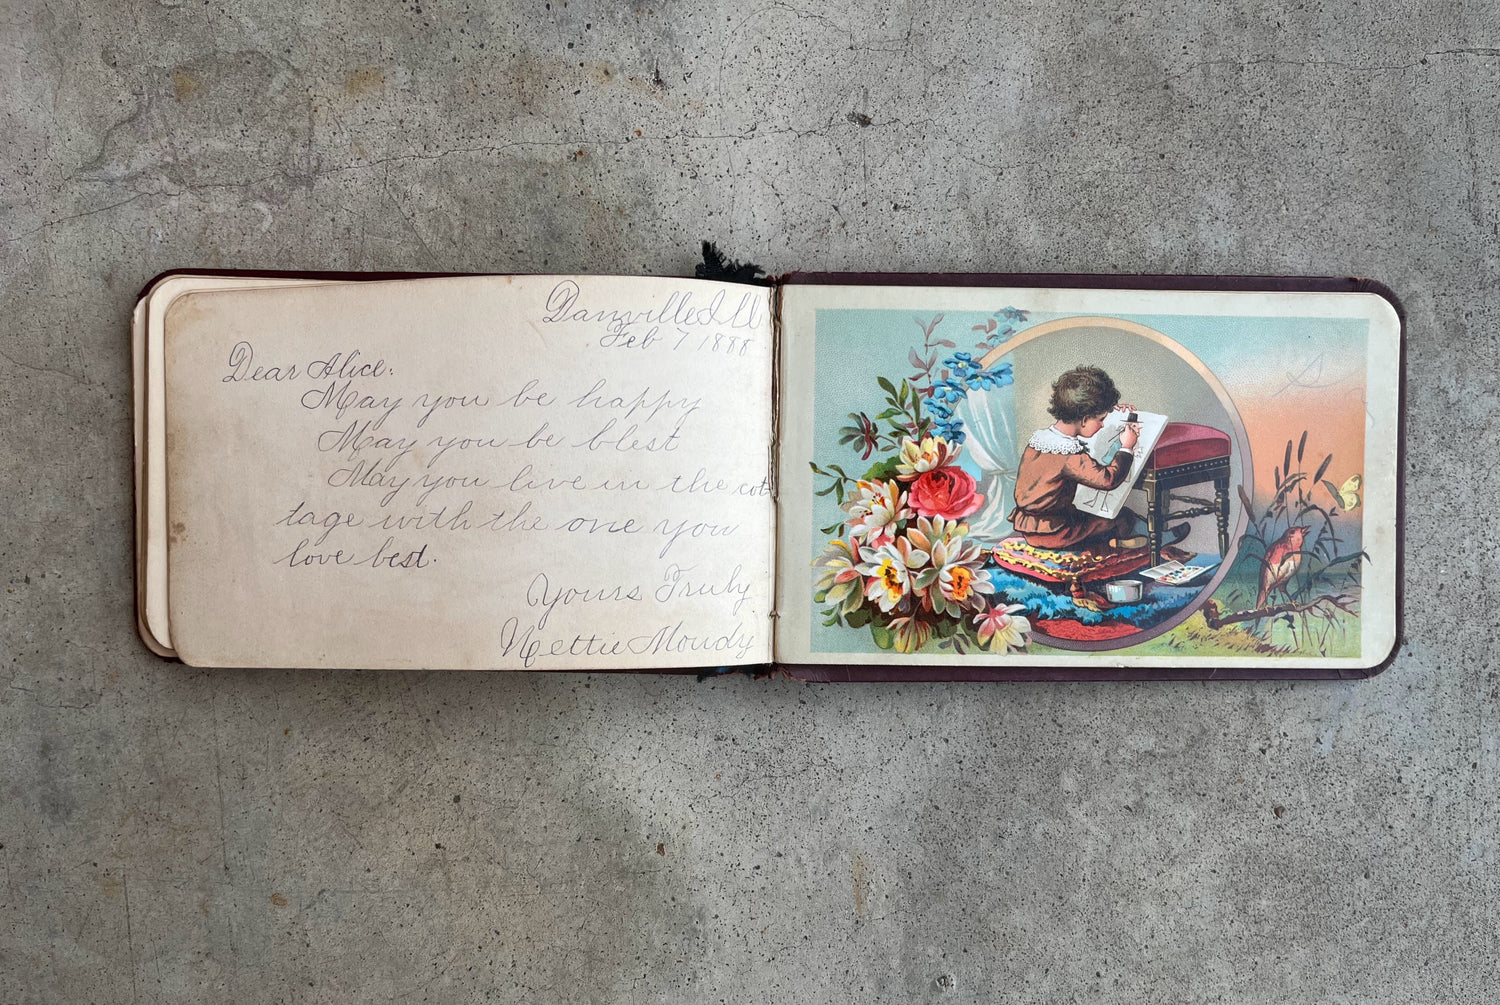 Danville Ill
Feb 7 1888
Dear Alice:
May you be happy
May you be blest
May you live in the cot
tage with the one you
love best.
Yours Truly
Nettie Moudy